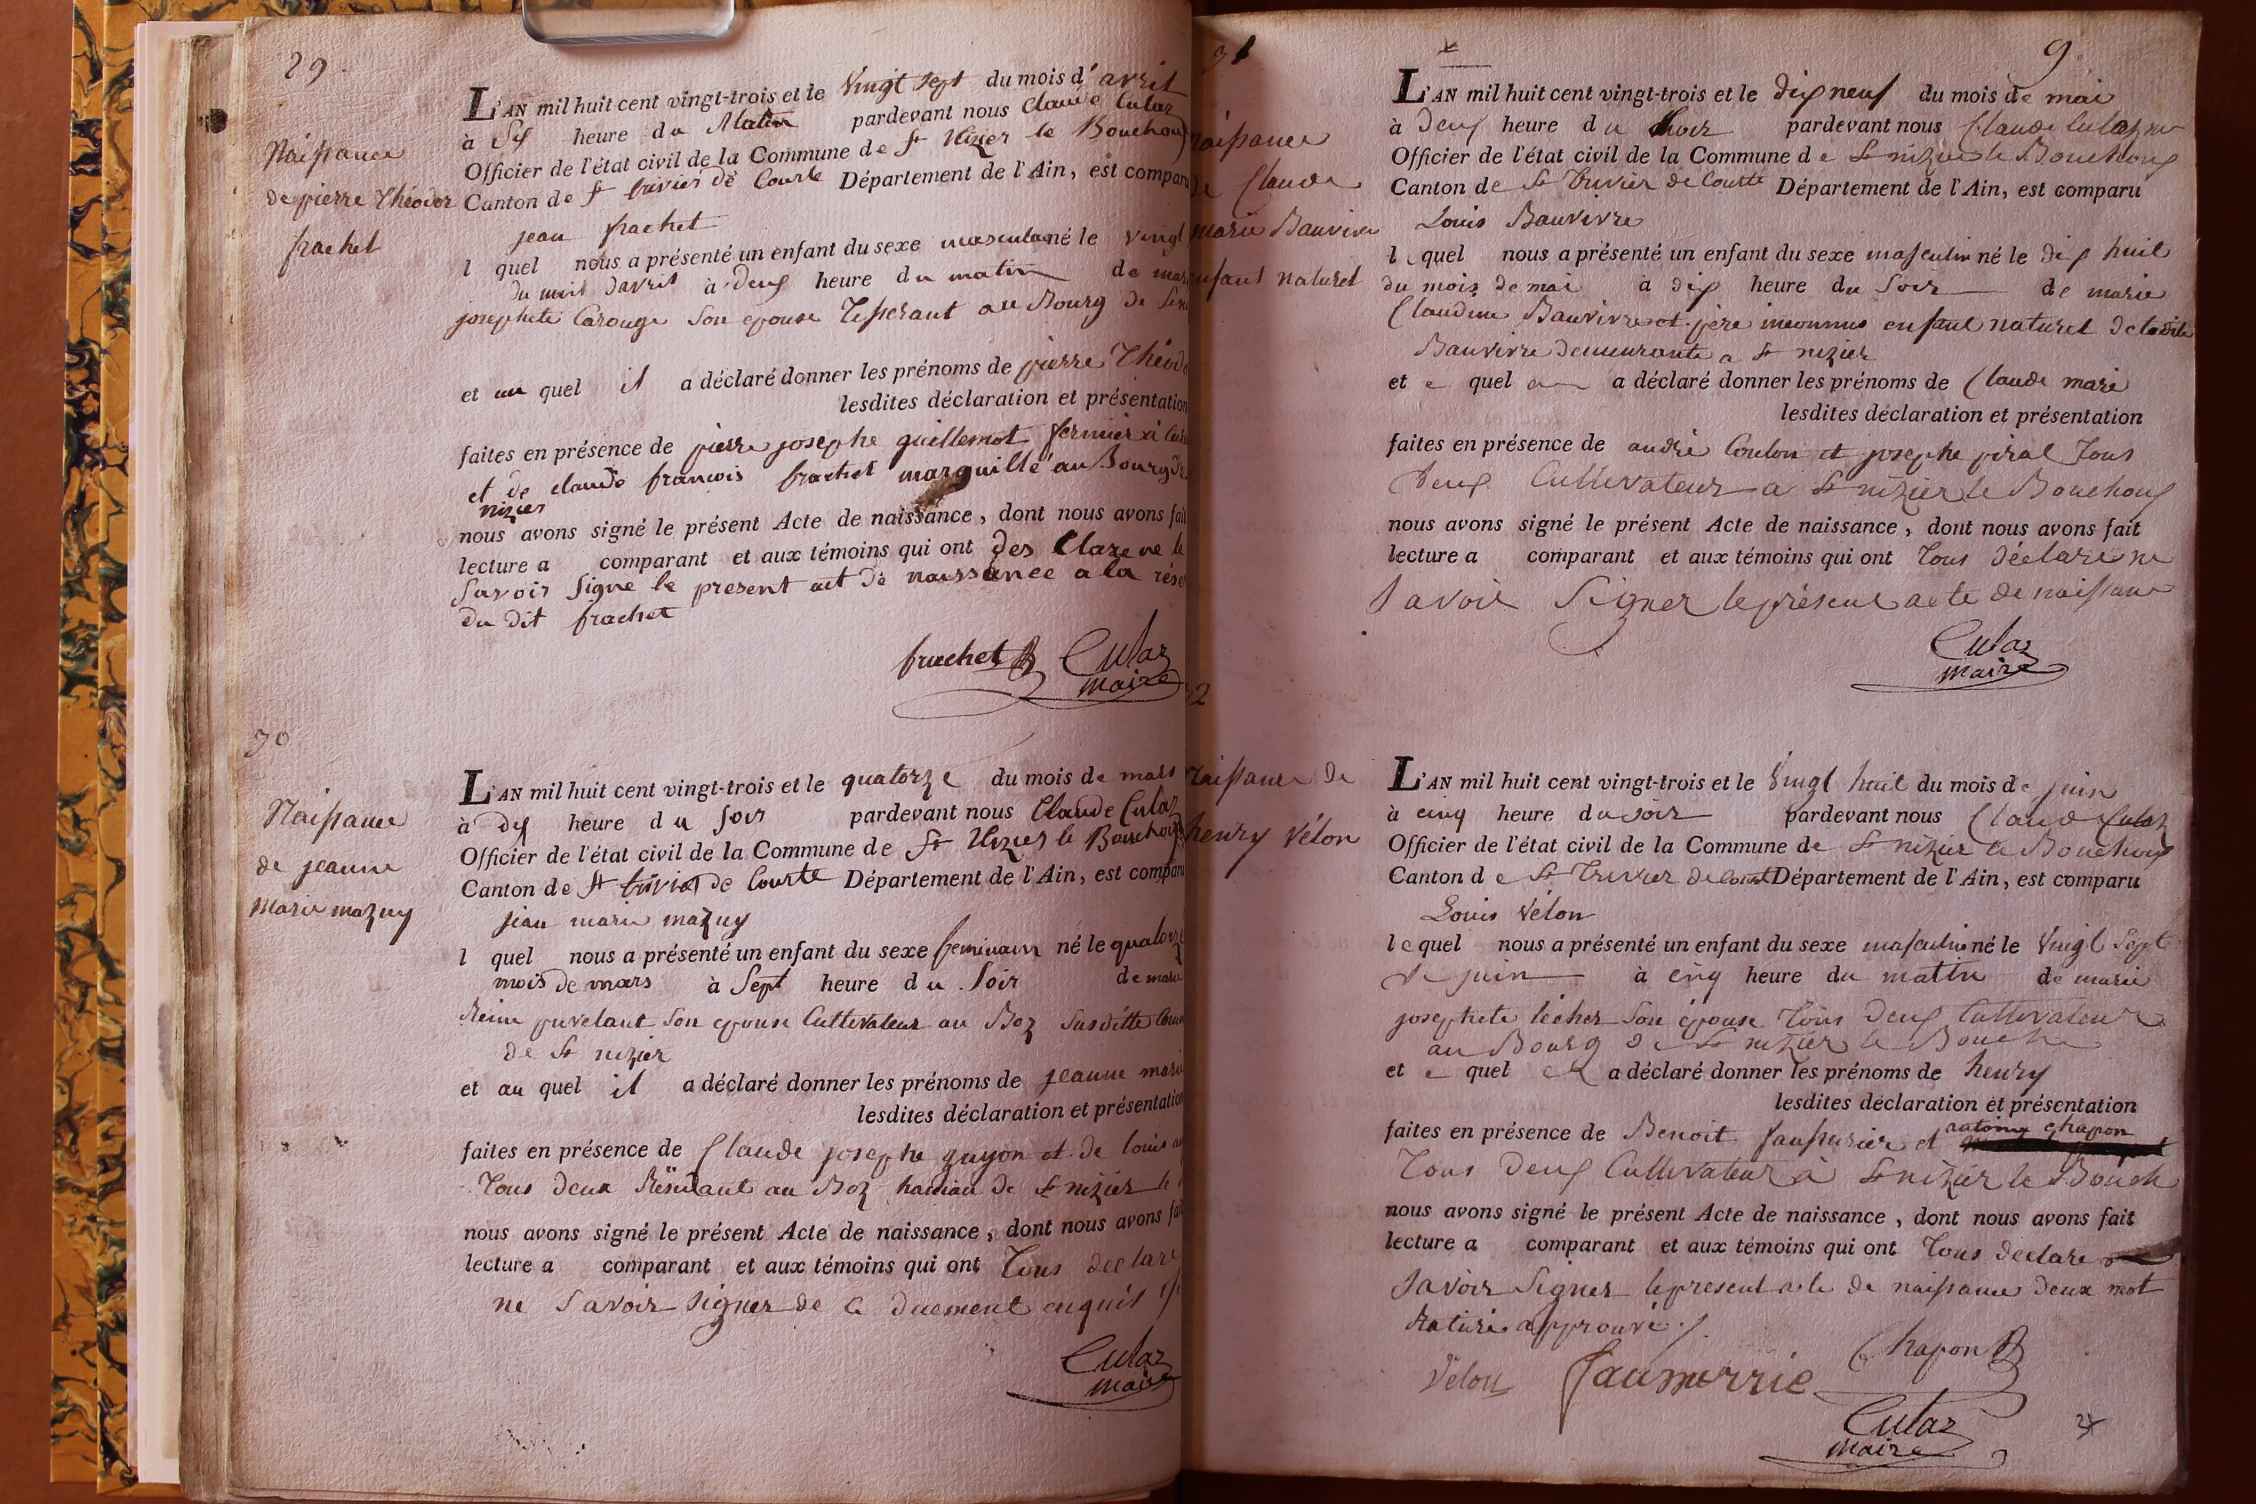 29
Naissance
de pierre Théodor
frachet
L'AN mil huit cent vingt-trois et le Vingt Sept du mois d'avril
à Six heure du Matin pardevant nous Claude Culaz
Officier de l'état civil de la Commune de St Nizier le Bouchoux
Canton de St trivier de Courte Département de l'Ain, est compar
jean frachet
l quel nous a présenté un enfant du sexe masculin né le vingt
du mois davril à Deux heure du matin de mar
josephete Carouge Son epouse Tisserant au Bourg de
et au quel il a déclaré donner les prénoms de pierre Théod
lesdites déclaration et présentation
faites en présence de pierre josephe guillemot fermier à
et de claude francois frachet marguillé au Bourg de
nizier
nous avons signé le présent Acte de naissance, dont nous avons fait
lecture a comparant et aux témoins qui ont des Clare ne le
Savoir Signe le present act de naissance a la rése
du dit frachet
frachet Culaz
maire
30
Naissance
de jeanne
Marie mazuy
L'AN mil huit cent vingt-trois et le quatorze du mois de mars
à dix heure du Soir pardevant nous Claude Culaz
Officier de l'état civil de la Commune de St Nizier le Bouchoux
Canton de St trivier de Courte Département de l'Ain, est compar
jean marie mazuy
l quel nous a présenté un enfant du sexe feminain né le quatorze
mois de mars à Sept heure du Soir de marie
Reine puvelant Son epouse Cultivateur au Boz Susditte Com
de St nizier
et au quel il a déclaré donner les prénoms de jeanne mari
lesdites déclaration et présentation
faites en présence de Claude josephe guyon et de louis
Tous deux Résidant au Boz hamau de St nizier le
nous avons signé le présent Acte de naissance, dont nous avons fai
lecture a comparant et aux témoins qui ont Tous declare
ne Savoir Signer de ce duement enquis
Culaz
maire
31
Naissance
de Claude
marie Bauvivre
enfant naturel
9
L'AN mil huit cent vingt-trois et le dix neuf du mois de mai
à Deux heure du Soir pardevant nous Claude Culaz
Officier de l'état civil de la Commune de St nizier le Bouchoux
Canton de St Trivier de Courte Département de l'Ain, est comparu
Louis Bauvivre
l e quel nous a présenté un enfant du sexe masculin né le dix huit
du mois de mai à dix heure du Soir de marie
Claudine Bauvivre et père inconnus enfant naturel de ladite
Bauvivre demeurante a St nizier
et quel a déclaré donner les prénoms de Claude marie
lesdites déclaration et présentation
faites en présence de andré Coulon et josephe piral Tous
Deux Cultivateur a St nizier le Bouchoux
nous avons signé le présent Acte de naissance, dont nous avons fait
lecture a comparant et aux témoins qui ont Tous déclare ne
Savoir Signer le présent acte de naissance
Culaz
maire
32
Naissance de
henry Vélon
L'AN mil huit cent vingt-trois et le Vingt huit du mois de juin
à cinq heure du soir pardevant nous Claude Culaz
Officier de l'état civil de la Commune de St nizier le Bouchoux
Canton de St Trivier de Court Département de l'Ain, est comparu
Louis Vélon
l e quel nous a présenté un enfant du sexe masculin né le Vingt Sept
de juin à cinq heure du matin de marie
josephete lécher Son épouse Tous Deux Cultivateur
au Bourg de St nizier le Bouch
et quel a déclaré donner les prénoms de henry
lesdites déclaration et présentation
faites en présence de Benoit et antoine Chapon
Tous Deux Cultivateur à St nizier le Bouch
nous avons signé le présent Acte de naissance, dont nous avons fait
lecture a comparant et aux témoins qui ont Tous declare
Savoir Signer le present acte de naissance deux mot
Raturé approuvé
Vélon Chapon
Culaz
maire